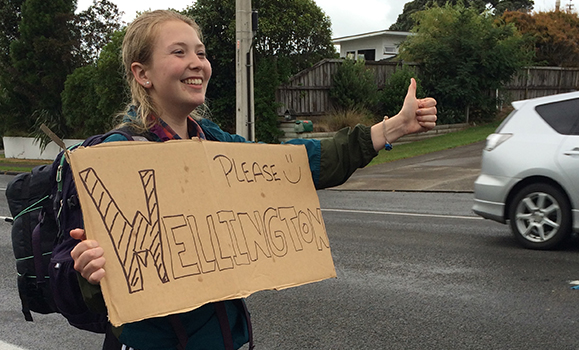 PLEASE :)
WELLINGTON